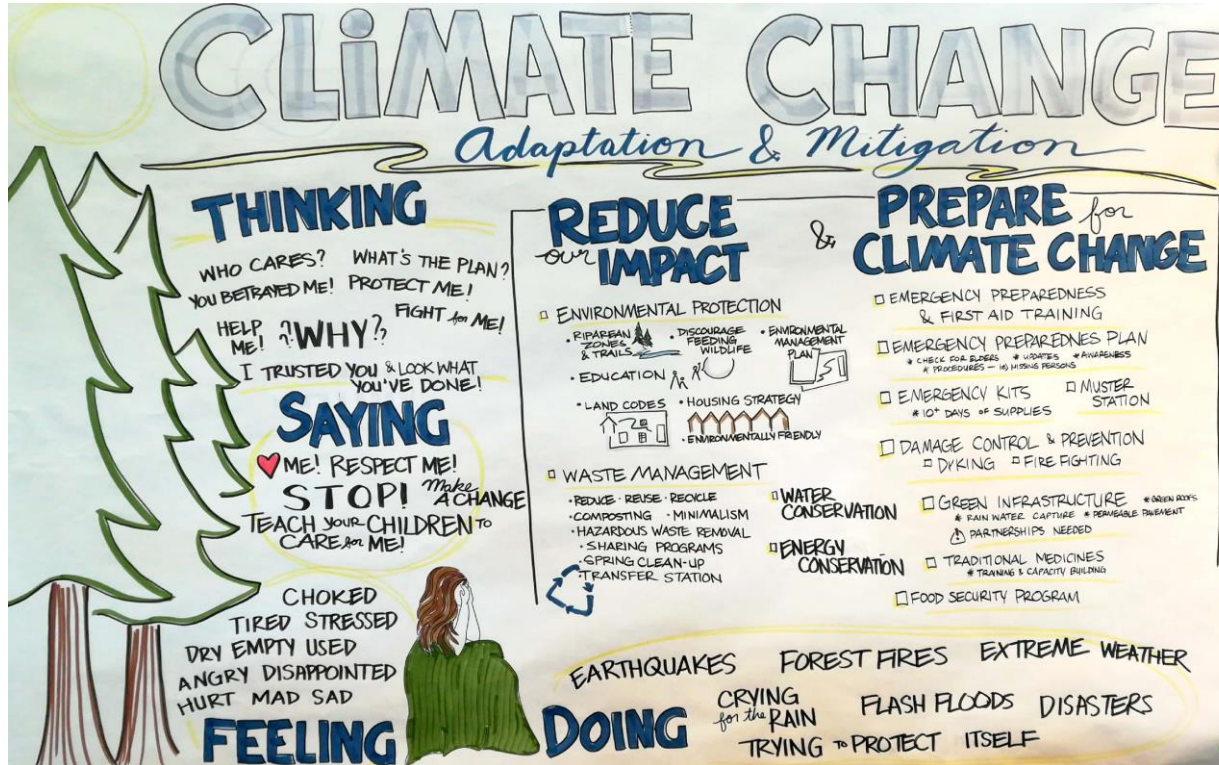 CLIMATE CHANGE
Adaptation & Mitigation
THINKING
WHO CARES?
WHAT'S THE PLAN?
YOU BETRAYED ME!
PROTECT ME!
FIGHT for ME!
HELP ME!
??WHY??
I TRUSTED YOU & LOOK WHAT
YOU'VE DONE!
SAYING
ME! RESPECT ME!
STOP! Make
A CHANGE
TEACH your CHILDREN TO
CARE for ME!
CHOKED
TIRED STRESSED
DRY EMPTY USED
ANGRY DISAPPOINTED
HURT MAD SAD
FEELING
REDUCE
our IMPACT
&
PREPARE for
CLIMATE CHANGE
ENVIRONMENTAL PROTECTION
• RIPAREAN
ZONES
& TRAILS
• DISCOURAGE
FEEDING
WILDLIFE
• ENVIRONMENTAL
MANAGEMENT
PLAN
• EDUCATION
• LAND CODES
• HOUSING STRATEGY
• ENVIRONMENTALLY FRIENDLY
WASTE MANAGEMENT
• REDUCE • REUSE • RECYCLE
• COMPOSTING • MINIMALISM
• HAZARDOUS WASTE REMOVAL
• SHARING PROGRAMS
• SPRING CLEAN-UP
• TRANSFER STATION
WATER
CONSERVATION
ENERGY
CONSERVATION
EMERGENCY PREPAREDNESS
& FIRST AID TRAINING
EMERGENCY PREPAREDNES PLAN
* CHECK FOR ELDERS * UPDATES * AWARENESS
* PROCEDURES — MISSING PERSONS
EMERGENCY KITS
* 10+ DAYS OF SUPPLIES
MUSTER
STATION
DAMAGE CONTROL & PREVENTION
DYKING FIRE FIGHTING
GREEN INFRASTRUCTURE * GREEN ROOFS
* RAIN WATER CAPTURE * PERMEABLE PAVEMENT
! PARTNERSHIPS NEEDED
TRADITIONAL MEDICINES
* TRAINING & CAPACITY BUILDING
FOOD SECURITY PROGRAM
DOING
EARTHQUAKES FOREST FIRES EXTREME WEATHER
CRYING
for the RAIN
FLASH FLOODS DISASTERS
TRYING TO PROTECT ITSELF